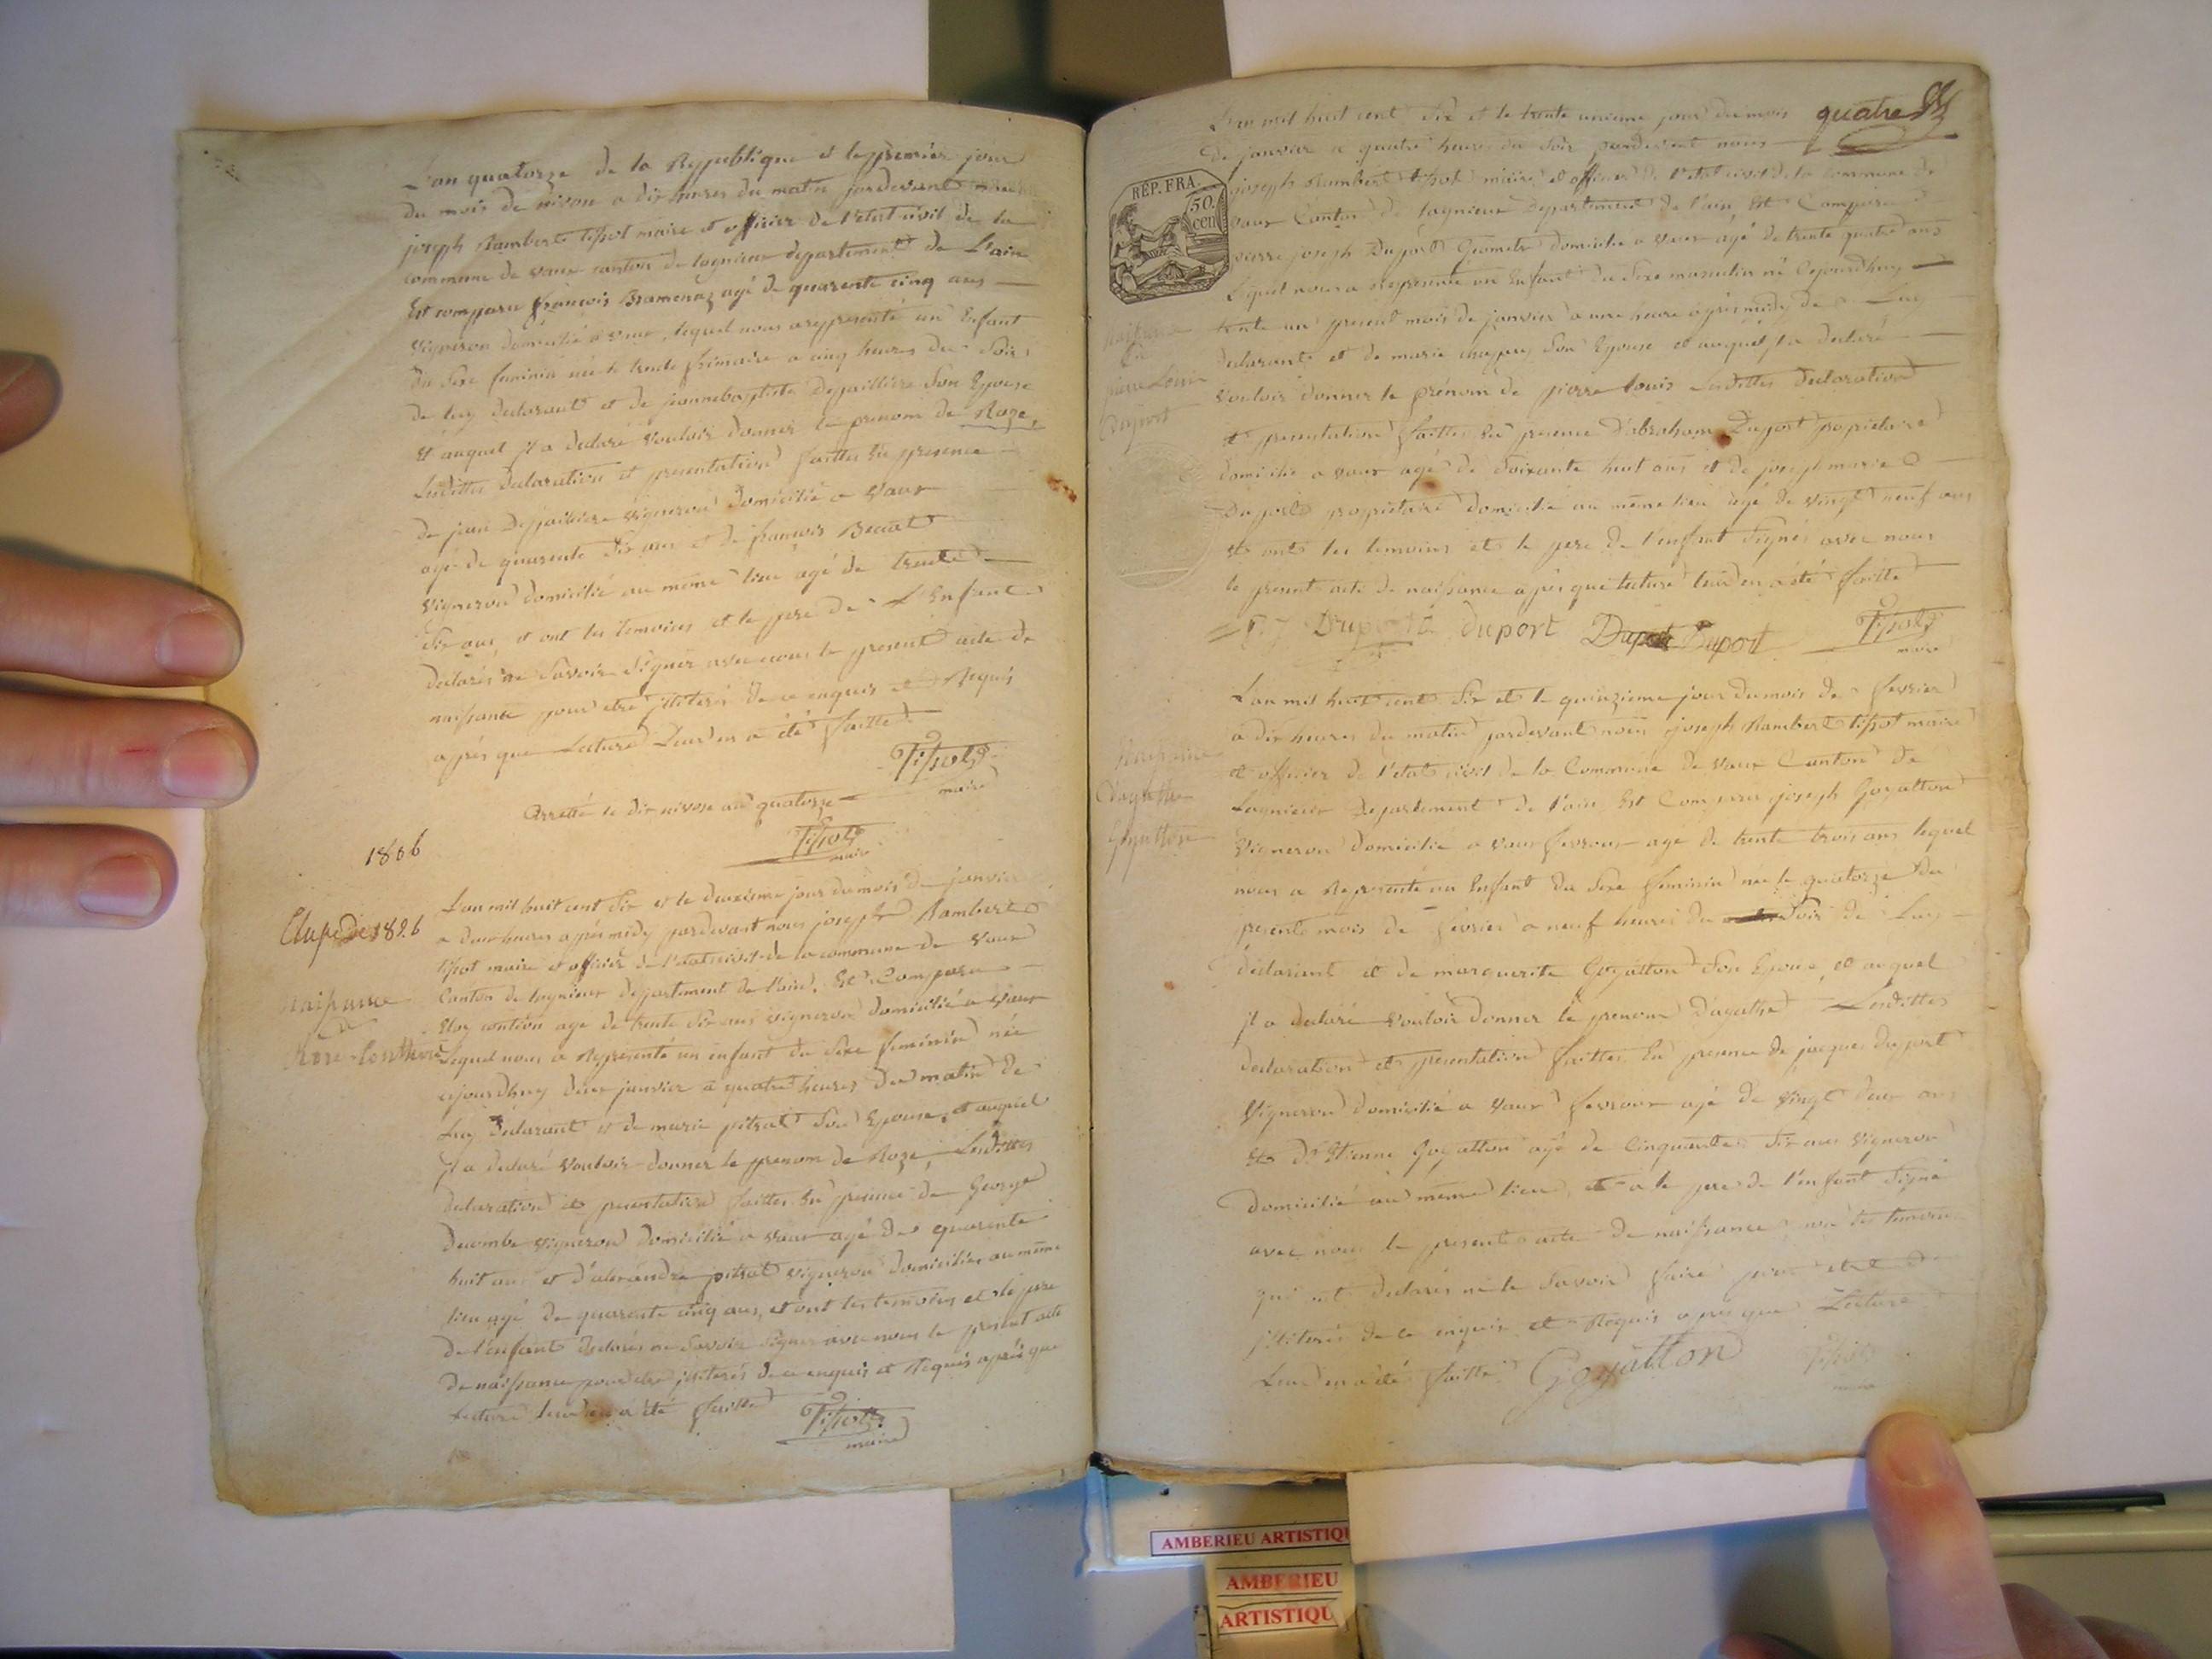 L'an quatorze de la Republique et le premier jour
du mois de nivose a dix heures du matin pardevant nous
joseph Rambert tissot maire et officier de l'etat civil de la
commune de vaux canton de lagnieu departement de L'ain
Est comparu françois Bramenaz agé de quarente cinq ans
vigneron domicilié a vaux, lequel nous a represénté un Enfant
du sexe feminin née le trente frimaire a cinq heures du soir
de luy declarant et de jeannebaptiste Depailliere son Epouse
Et auquel jl a declaré vouloir donner le prenom de Roze,
Lesdittes declaration et presentation faittes En presence
de jean Depailliere vigneron domicilié a Vaux
agé de quarente six ans et de françois Becat
vigneron domicilié au même lieu agé de trente
six ans, et ont les temoins et le pere de L'Enfant
declarés ne savoir signer avec nous le present acte de
naissance pour etre jlliterés de ce enquis et Requis
après que Lecture Leur en a été faitte
Tissot
maire
Arretté le dix nivose an quatorze
Tissot
maire
1806
L'an mil huit cent six et le deuxieme jour du mois de janvier
Clupe de 1826
a deux heures après midy pardevant nous joseph Rambert
tissot maire et officier de l'etat civil de la commune de vaux
Canton de lagnieux departement de l'ain, Est Comparu
naissance
de
Eloy agé de trente six ans vigneron domicilié a vaux
Lequel nous a represénté un enfant du sexe feminin née
cejourdhuy deux janvier a quatre heures du matin de
Luy declarant et de marie pitrat son Epouse, et auquel
jl a declaré vouloir donner le prenom de Roze, Lesdittes
declaration et presentation faittes En presence de George
Decombe vigneron domicilié a vaux agé de quarente
huit ans et d'alexandre pitrat vigneron domicilier au même
lieu agé de quarente cinq ans, et ont les temoins et le pere
de l'enfant declarés ne savoir signer avec nous le present acte
de naissance pour etre jlliterés de ce enquis et Requis après que
lecture leur en a été faitte
Tissot
maire
quatre
L'an mil huit cent six et le trente unieme jour du mois
de janvier a quatre heures du soir pardevant nous
RÉP. FRA.
50.
cen
joseph Rambert tissot maire et officier de l'etat civil de la commune de
vaux Canton de lagnieux Departement de l'ain, Est Comparu
pierre joseph Duport Géometre domicilié a vaux agé de trente quatre ans
Lequel nous a represénté un Enfant du sexe masculin né Cejourdhuy
trente un present mois de janvier a une heure après midy de Luy
naissance
de
pierre Louis
Duport
declarant et de marie son Epouse et auquel jl a declaré
vouloir donner le prénom de pierre louis Lesdittes declaration
et presentation faittes En presence d'abraham Duport propriétaire
domicilié a vaux agé de soixante huit ans et de joseph marie
Duport propriétaire domicilié au même lieu agé de vingt neuf ans
et ont les temoins et le pere de l'enfant signés avec nous
le present acte de naissance après que lecture leur en a été faitte
P. J. Duport duport Duport Duport Tissot
maire
L'an mil huit cent six et le quinzieme jour du mois de fevrier
a dix heures du matin pardevant nous joseph Rambert tissot maire
naissance
d'agathe
Goyatton
et officier de l'etat civil de la Commune de vaux Canton de
Lagnieux Departement de l'ain Est Comparu joseph Goyatton
vigneron domicilié a vaux fevroux agé de trente trois ans lequel
nous a represénté un Enfant du sexe feminin née le quatorze du
present mois de fevrier a neuf heures du soir de Luy
declarant et de marguerite Goyatton son Epouse, et auquel
jl a declaré vouloir donner le prenom d'agathe Lesdittes
declaration et presentation faittes En presence de jacques duport
vigneron domicilié a vaux fevroux agé de vingt deux ans
et d'Etienne Goyatton agé de Cinquante six ans vigneron
domicilié au même lieu, et a le pere de l'enfant signé
avec nous le present acte de naissance, non les temoins
qui ont declarés ne le savoir faire pour etre
jlliterés de ce enquis et Requis après que Lecture
Leur en a été faitte Goyatton Tissot
maire
AMBERIEU ARTISTIQU
AMBERIEU
ARTISTIQU